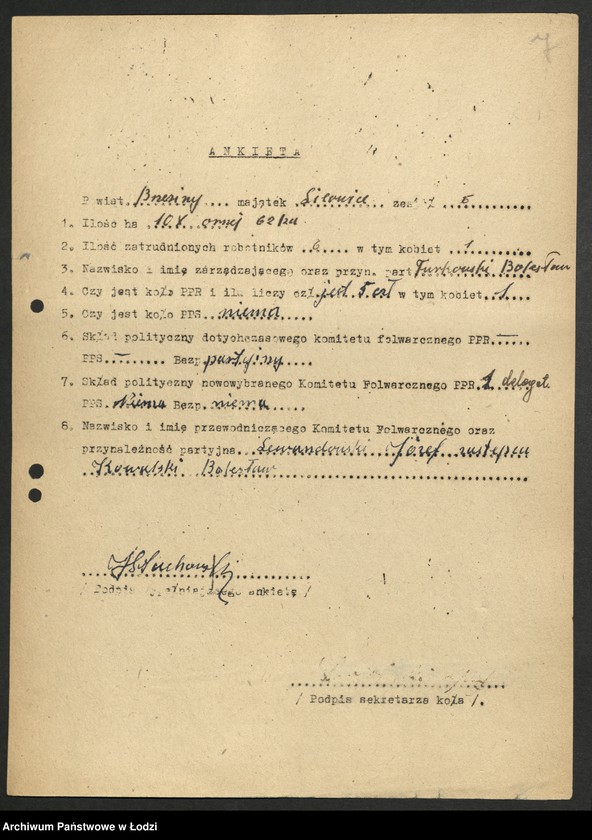 7
ANKIETA
Powiat Brzeziny majątek zes
1. Ilość ha 108 ornej 62 ha
2. Ilość zatrudnionych robotników 6 w tym kobiet 1
3. Nazwisko i imię zarządzającego oraz przyn. part Turkowski Bolesław
4. Czy jest koło PPR i ilu liczy czł. jest 5 czł w tym kobiet 1
5. Czy jest koło PPS niema
6. Skład polityczny dotychczasowego komitetu folwarcznego PPR —
PPS — Bezp. partyjny
7. Skład polityczny nowowybranego Komitetu Folwarcznego PPR 1 delegat
PPS. Niema Bezp. niema
8. Nazwisko i imię przewodniczącego Komitetu Folwarcznego oraz
przynależność partyjna Lewandowski Józef zastępca
Kowalski Bolesław
/ Podpis ankietę /
/ Podpis sekretarza koła /.
Archiwum Państwowe w Łodzi